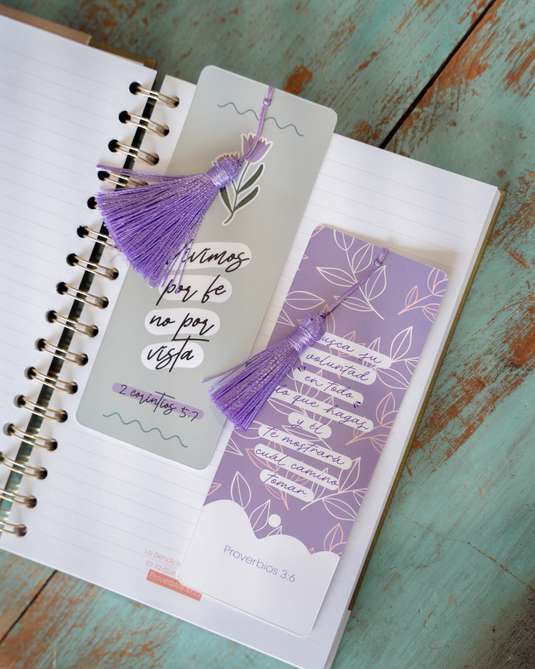 Vivimos
por fe
no por
vista
2 corintios 5:7
Busca su
voluntad
en todo
lo que hagas,
y él
te mostrará
cuál camino
tomar.
Proverbios 3:6
La bendici
es la que